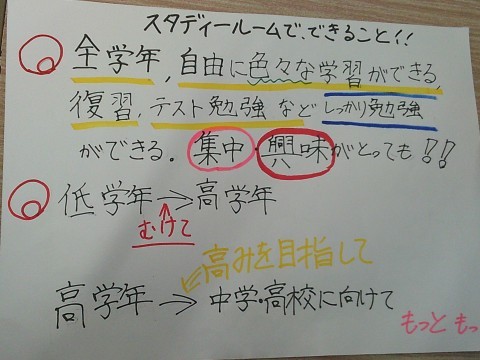 スタディールームで、できること!!
全学年,自由に色々な学習ができる,
復習,テスト勉強などしっかり勉強
ができる。集中・興味がとっても!!
低学年→高学年
むけて
高みを目指して
高学年→中学・高校に向けて
もっともっ